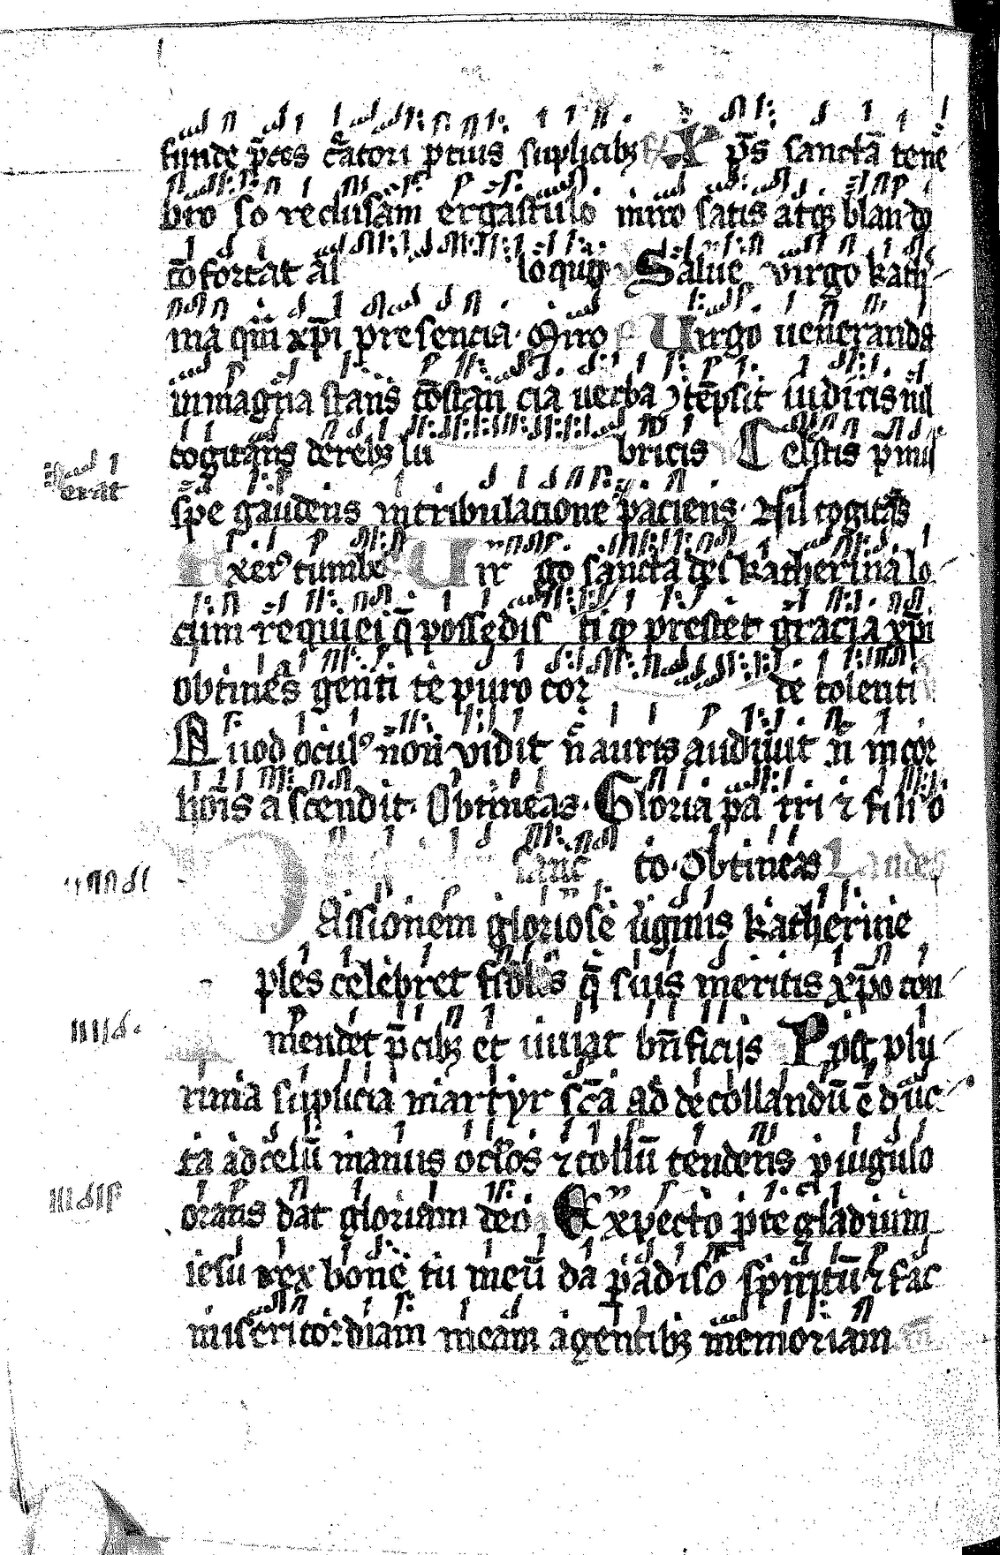 funde p̄ces c̄atori p̄cius suplicibꝫ xp̄s sanctā tene
bro so reclusam ergastulo miro satis atqꝫ blando
cōfortat al loquio Salue virgo kath
rina qm̄ xp̄i presencia. Miro Uirgo ueneranda
in magna stans cōstan cia uerba ꝯtēpsit iudicis nil
cogitans de rebꝫ lu bricis Celestis p̄mii
erat
spe gaudens in tribulacione paciens. Nil cogitās
xerꝰ tumbe Uir go sancta dei katherina lo
cum requiei q̄ possedisti qͥ prestet gracia xp̄i
obtines genti te puro cor de colenti
Quod oculꝰ non vidit n̄ auris audiuit n̄ in cor
hoīs ascendit. Obtineas. Gloria pa tri ⁊ fili o
sanc to. Obtineas Laudes
Passionem gloriose uīginis katherine
ples celebret fidelis q̄ suis meritis xp̄o com
mendet p̄cibꝫ et iuuat bn̄ficijs Post plu
rima suplicia martyr sc̄a ad decollandū ē duc
ta ad celū manus oc̄los ⁊ collū tendens p iugulo
orans dat gloriam deo Expecto p te gladium
iesu rex bone tu meū da paradiso spiritū ⁊ fac
misericordiam meam agentibꝫ memoriam